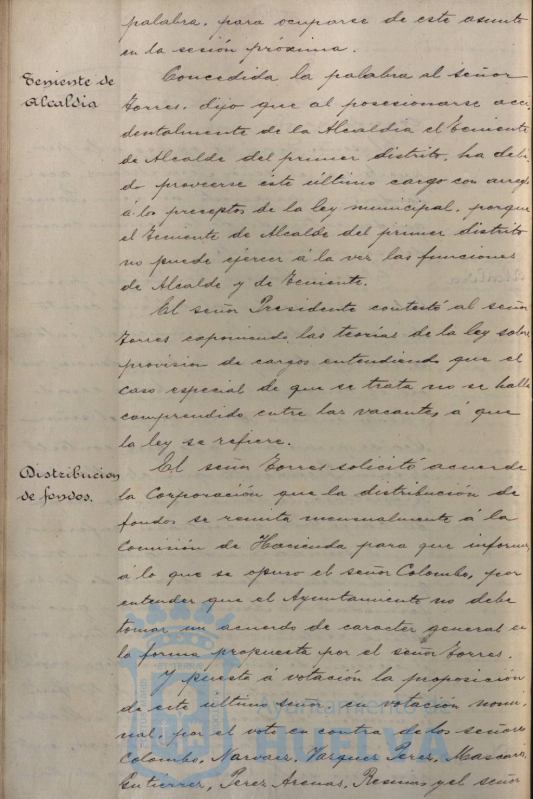 palabra, para ocuparse de este asunto
en la sesión próxima.
Teniente de
Alcaldia
Concedida la palabra al señor
Torres, dijo que al posesionarse acci
dentalmente de la Alcaldia el Teniente
de Alcalde del primer distrito, ha debi
do proveerse este último cargo con arreg
á los preceptos de la ley municipal, porque
el Teniente de Alcalde del primer distrito
no puede ejercer á la vez las funciones
de Alcalde y de Teniente.
El señor Presidente contestó al señor
Torres exponiendo las teorías de la ley sobre
provision de cargos entendiendo que el
caso especial de que se trata no se halla
comprendido entre las vacantes á que
la ley se refiere.
Distribucion
de fondos.
El señor Torres solicitó acuerde
la Corporación que la distribución de
fondos se remita mensualmente á la
Comisión de Hacienda para que informe,
á lo que se opuso el señor Colombo, por
entender que el Ayuntamiento no debe
tomar un acuerdo de caracter general en
la forma propuesta por el señor Torres.
Y puesta á votación la proposición
de este último señor, en votación nomi
nal, por el voto en contra de los señores
Colombo, Narvaez, Vazquez Perez, Mascarós,
Gutierrez, Perez Arenas, y el señor
Ayuntamiento de
HUELVA